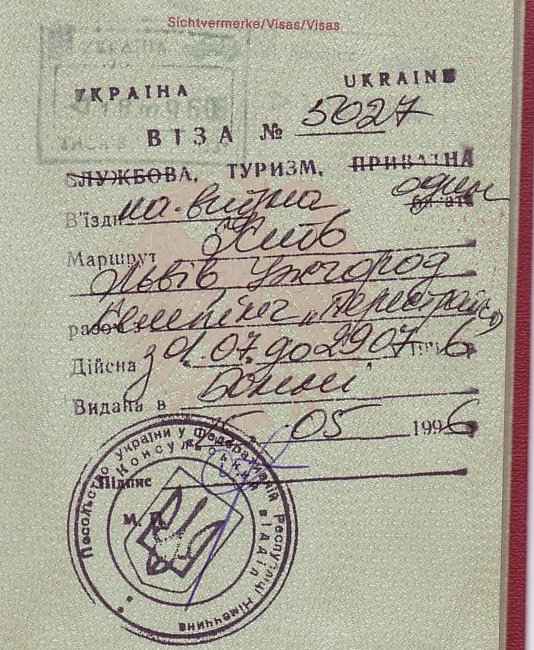 Sichtvermerke/Visas/Visas
УКРАЇНА UKRAINE
ВІЗА № 5027
СЛУЖБОВА, ТУРИЗМ, ПРИВАТНА
В'їздна-виїзна один
Маршрут Київ
Львів Ужгород
Кемпінг „
разом
Дійсна з 01.07. до 29 07 1996
Видана в Бонні
05 1996
Підпис
М. П.
Посольство України у Федеративній Республіці Німеччина
Консульський відділ